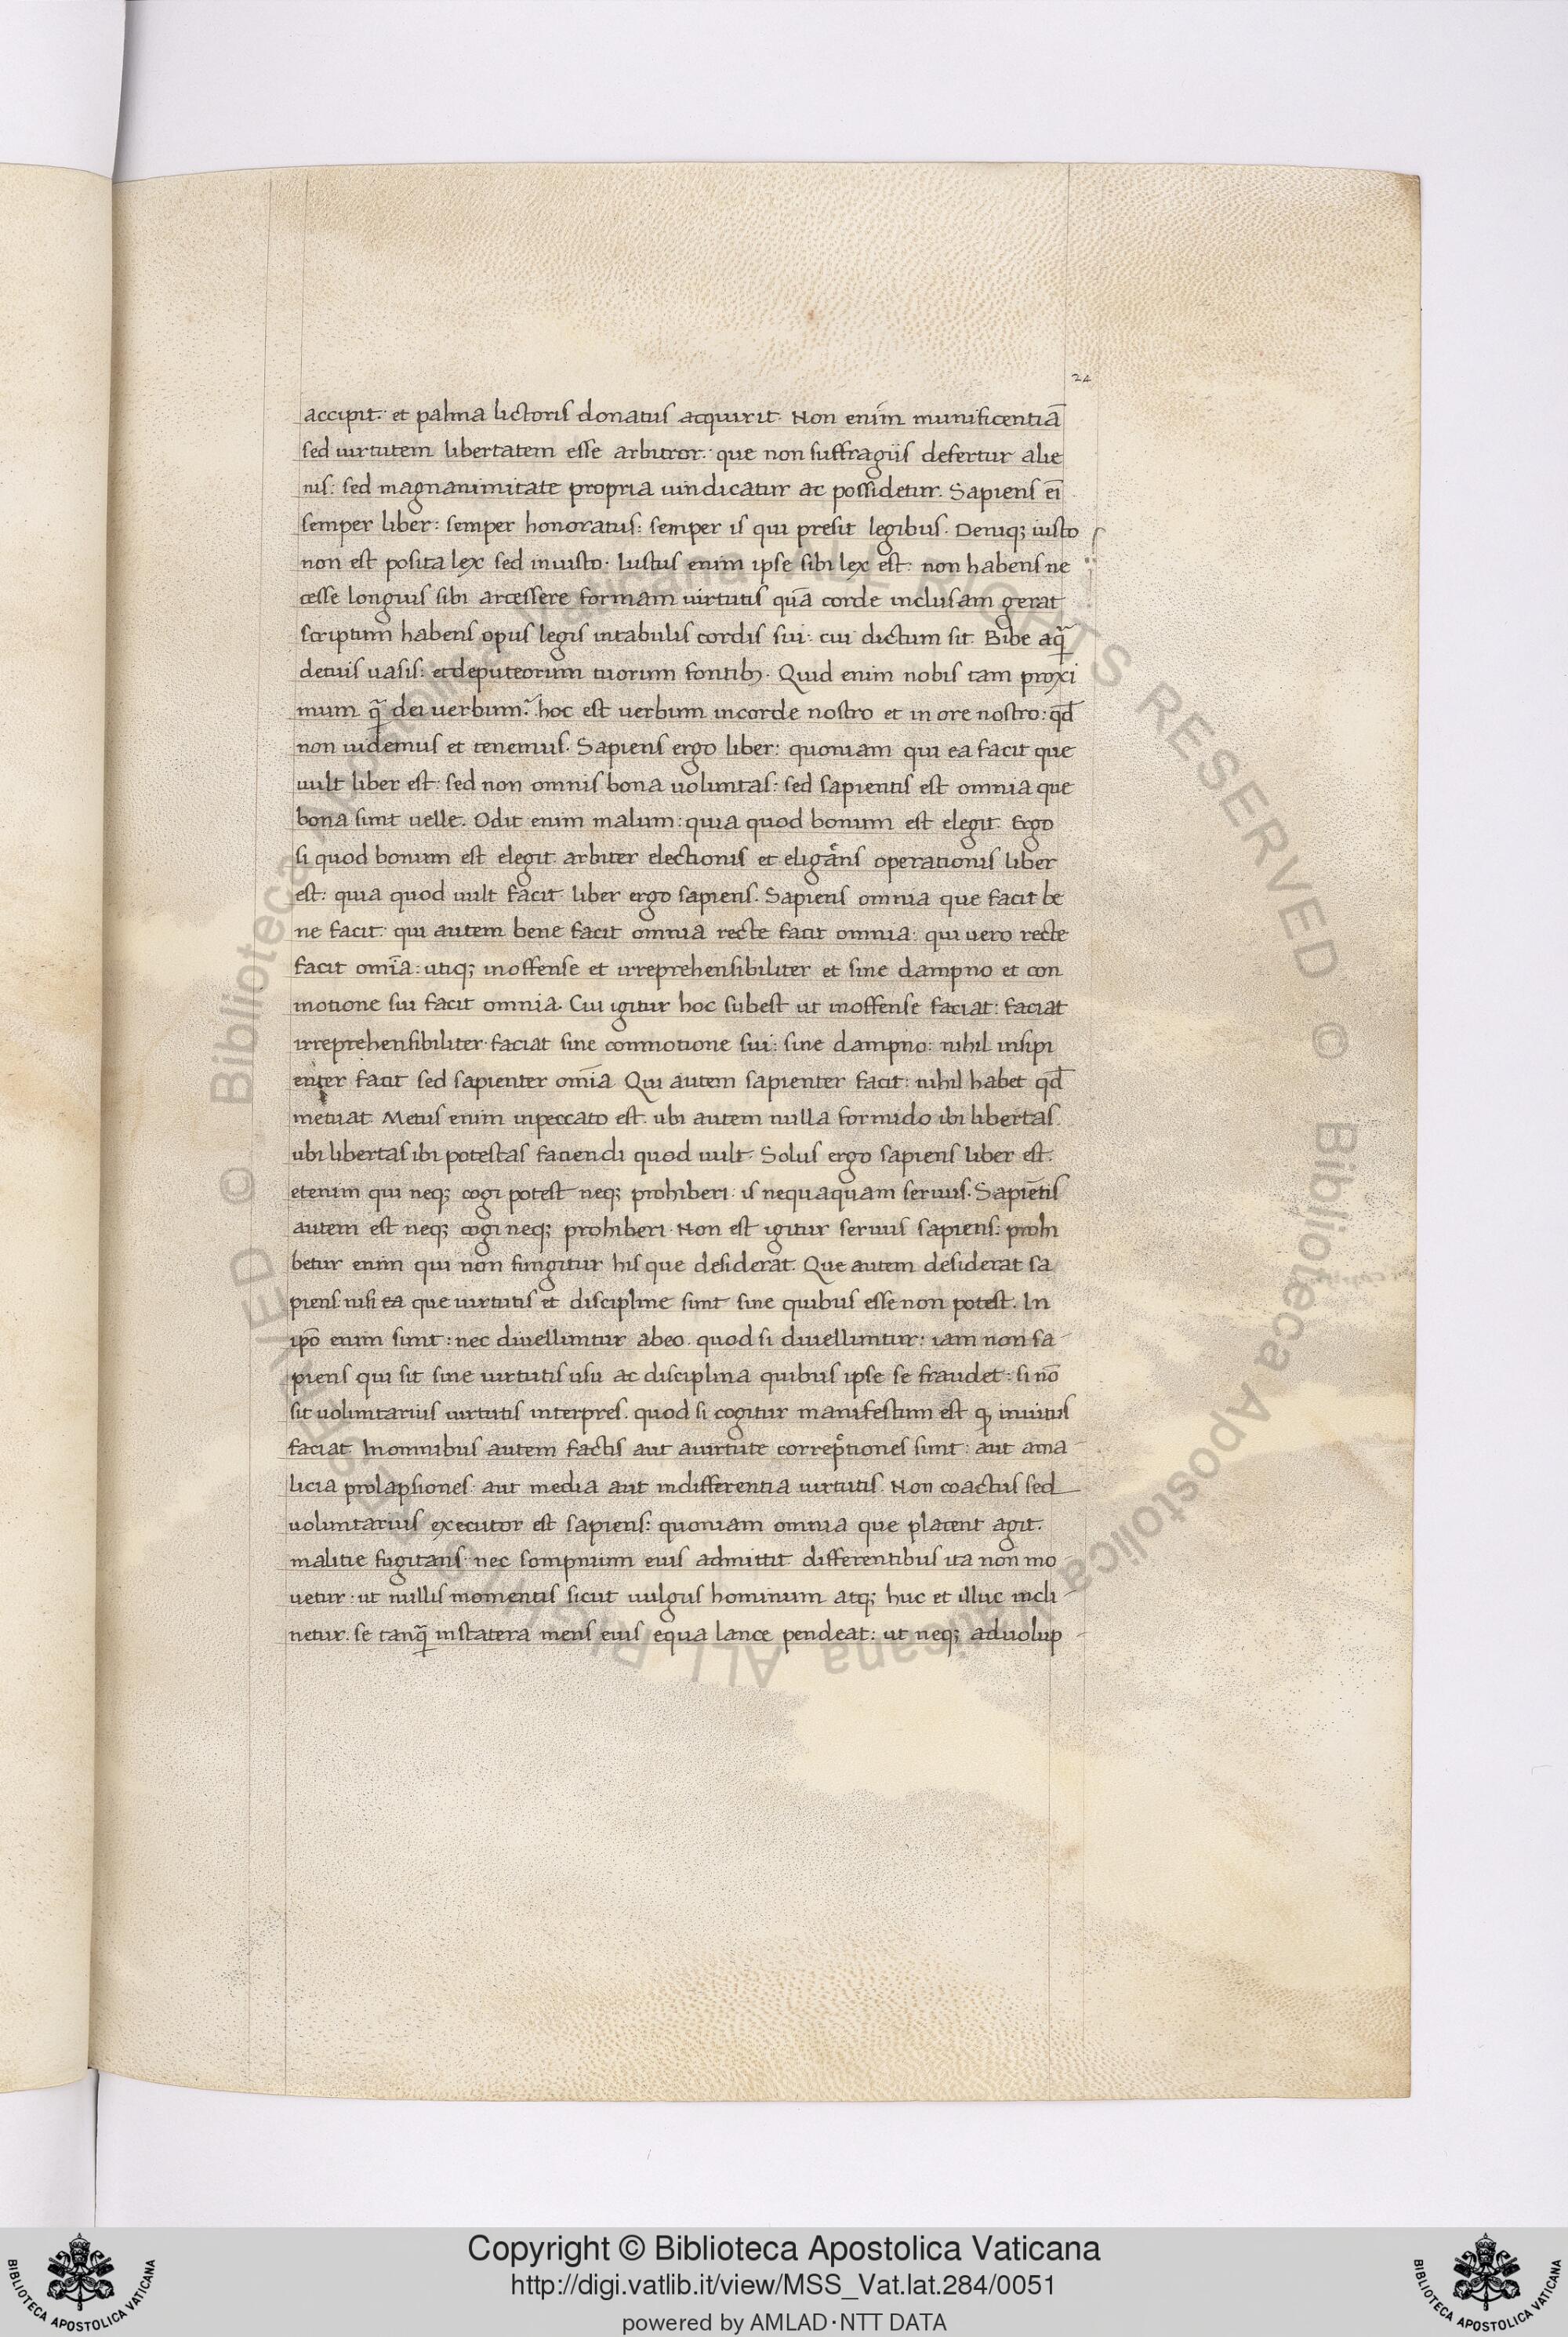 24
accipit: et palma lictoris donatus acquirit. Non enim munificentiā
sed uirtutem libertatem esse arbitror: que non suffragiis defertur alie
nis: sed magnanimitate propria uindicatur ac possidetur. Sapiens ei̅
semper liber: semper honoratus: semper is qui presit legibus. Deniqꝫ iusto
non est posita lex sed iniusto. Iustus enim ipse sibi lex est: non habens ne
cesse longius sibi arcessere formam uirtutis quā corde inclusam gerat
scriptum habens opus legis intabulis cordis sui: cui dictum sit. Bibe aq̄
detuis uasis: etdeputeorum tuorum fontibꝫ. Quid enim nobis tam proxi
mum q̄ dei uerbum? hoc est uerbum incorde nostro et in ore nostro: qd̄
non uidemus et tenemus. Sapiens ergo liber: quoniam qui ea facit que
uult liber est: sed non omnis bona uoluntas: sed sapientis est omnia que
bona sunt uelle. Odit enim malum: quia quod bonum est elegit. Ergo
si quod bonum est elegit arbiter electionis et eligans operationis liber
est: quia quod uult facit: liber ergo sapiens. Sapiens omnia que facit be
ne facit: qui autem bene facit omnia recte facit omnia: qui uero recte
facit omi̅a: utiqꝫ inoffense et irreprehensibiliter et sine dampno et con
motione sui facit omnia. Cui igitur hoc subest ut inoffense faciat: faciat
irreprehensibiliter: faciat sine conmotione sui: sine dampno: nihil insipi
enter facit sed sapienter omi̅a Qui autem sapienter facit: nihil habet qd̄
metuat. Metus enim inpeccato est. ubi autem nulla formido ibi libertas.
ubi libertas ibi potestas faciendi quod uult. Solus ergo sapiens liber est.
etenim qui neqꝫ cogi potest neqꝫ prohiberi: is nequaquam seruus. Sapiēntis
autem est neqꝫ cogi neqꝫ prohiberi. Non est igitur seruus sapiens: prohi
betur enim qui non fungitur his que desiderat. Que autem desiderat sa
piens nisi ea que uirtutis et discipline sunt sine quibus esse non potest. In
ip̄o enim sunt: nec diuelluntur abeo. quod si diuelluntur: iam non sa
piens qui sit sine uirtutis usu ac disciplina quibus ipse se fraudet: si nō
sit uoluntarius uirtutis interpres. quod si cogitur manifestum est qꝫ inuitus
faciat. Inomnibus autem factis aut auirtute correptiones sunt: aut ama
licia prolapsiones: aut media aut indifferentia uirtutis. Non coactus sed
uoluntarius executor est sapiens: quoniam omnia que placent agit.
malitie fugitans: nec sompnium eius admittit. differentibus ita non mo
uetur: ut nullis momentis sicut uulgus hominum atqꝫ huc et illuc incli
netur. se tanq̄ instatera mens eius equa lance pendeat: ut neqꝫ aduolup
© Biblioteca Apostolica Vaticana ALL RIGHTS RESERVED © Biblioteca Apostolica Vaticana ALL RIGHTS RESERVED
Copyright © Biblioteca Apostolica Vaticana
http://digi.vatlib.it/view/MSS_Vat.lat.284/0051
powered by AMLAD·NTT DATA
BIBLIOTECA APOSTOLICA VATICANA
BIBLIOTECA APOSTOLICA VATICANA